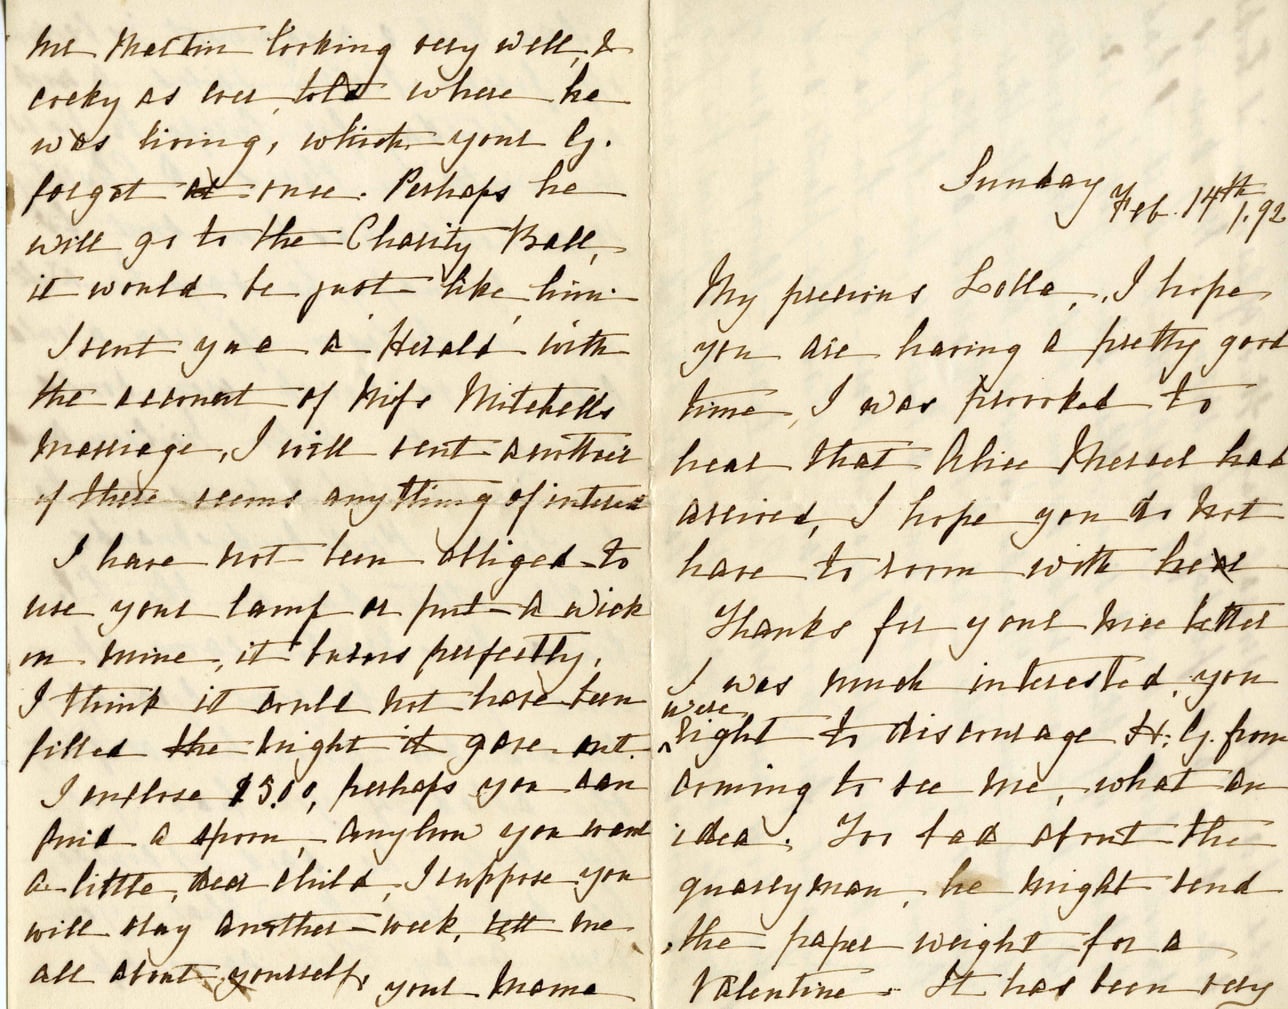 Sunday
Feb. 14th, 92
My precious Lolla, I hope
you are having a pretty good
time, I was provoked to
hear that Alice had
arrived, I hope you do not
have to room with her
Thanks for your nice letter
I was much interested, you
were
right to discourage H. G. from
coming to see me, what an
idea. Too bad about the
quarryman, he might send
the paper weight for a
Valentine. It has been very
Mr Martin looking very well, &
cocky as ever, told where he
was living, which your G.
forgot at once. Perhaps he
will go to the Charity Ball,
it would be just like him.
I sent you a Herald with
the account of Miss Mitchells
marriage, I will sent another
if there seems anything of interest
I have not been obliged to
use your lamp or put a wick
in mine, it burns perfectly,
I think it could not have been
filled the night it gave out.
I enclose $5.00, perhaps you can
find a spoon, anyhow you want
a little, dear child, I suppose you
will stay another week, tell me
all about yourself, your Mama